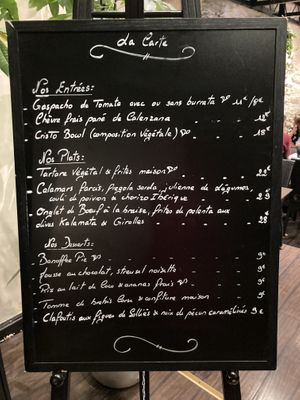 La Carte
Nos Entrées:
Gaspacho de Tomate avec ou sans burrata
Chèvre frais pané de Calenzana
Cristo Bowl (composition végétale) - 18€
Nos Plats:
Tartare Végétal & frites maison
Calamars farcis, fregola sarda, julienne de légumes
coulis de poivron & chorizo Ibérique
Onglet de Boeuf à la braise, frites de polenta aux
olives Kalamata & Girolles - 28€
Nos Desserts:
Banoffee Pie - 9€
Mousse au chocolat, streusel noisette - 9€
Riz au lait de Coco & ananas frais - 9€
Tomme de brebis Corse & confiture maison - 9€
Clafoutis aux figues de Solliès & noix de pécan caramélisées 9€